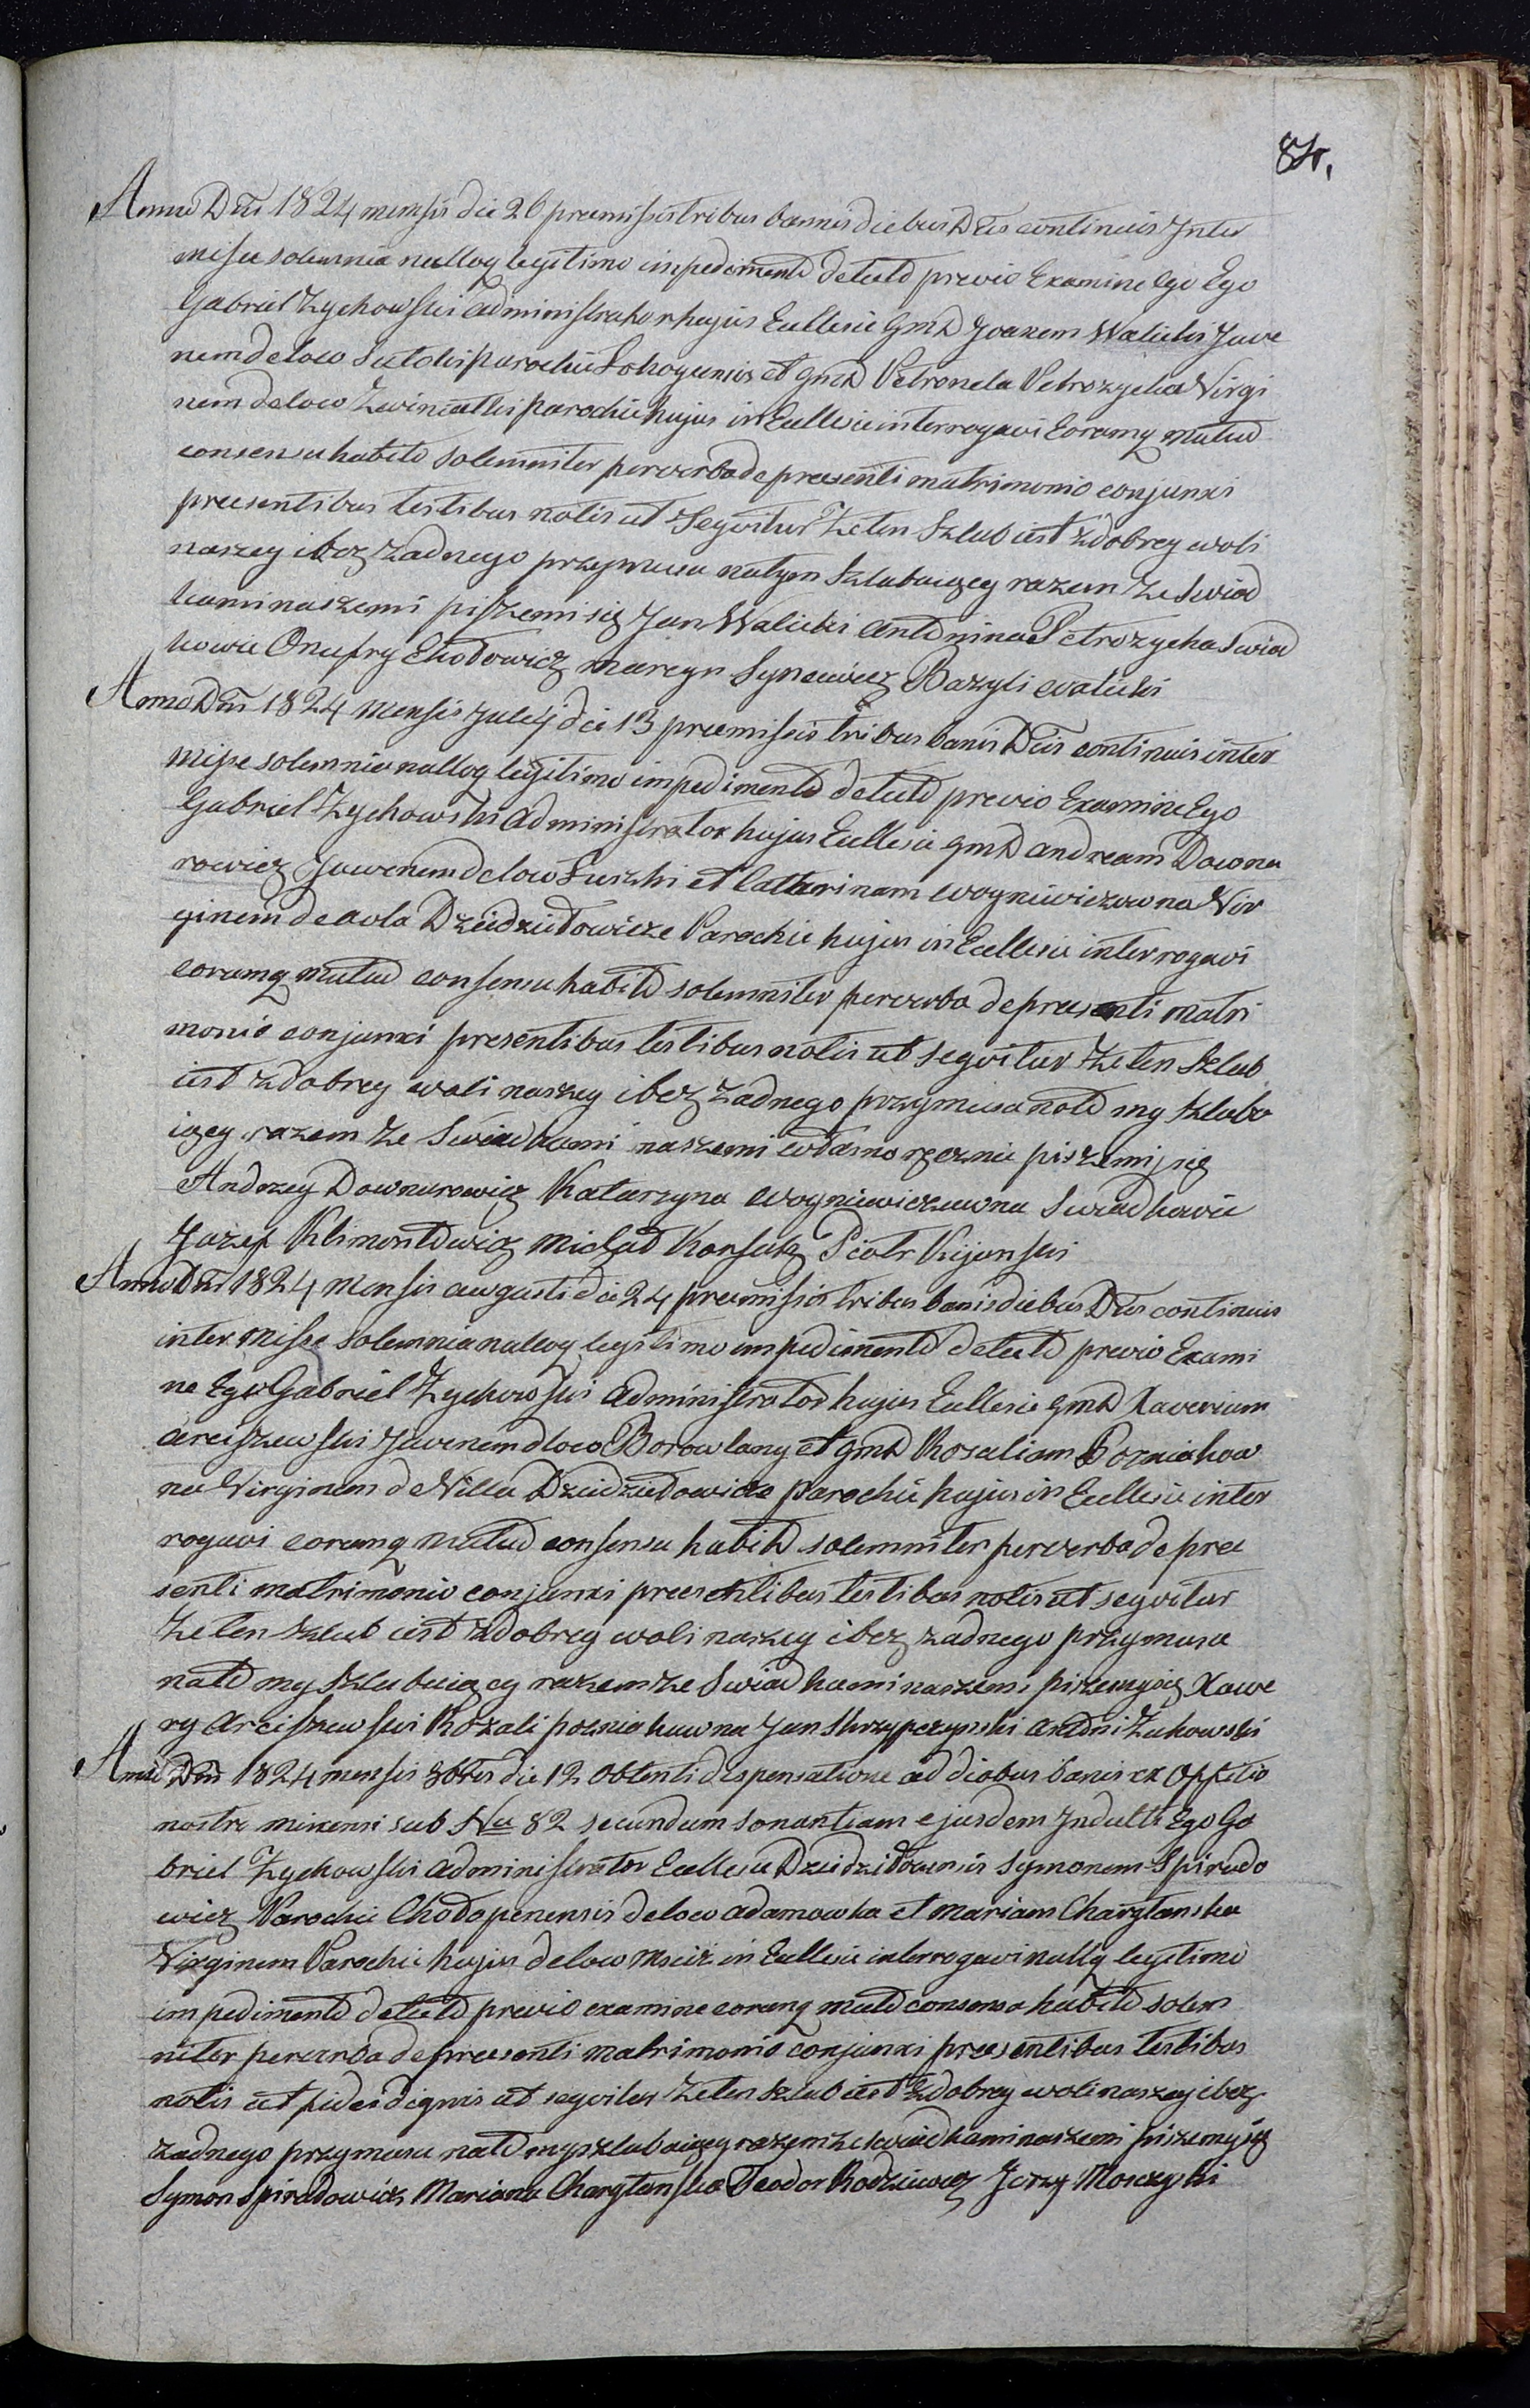 84.
Anno Dni 1824 mensis die 26 premissis tribus bannis diebus Dtis continuis Inter
missa solemnia nulloq legitimo impedimento detecto previo Examine Ego Ego
Gabriel Zychowski Administrator hujus Ecclesie Gmd Joanem Walicki Juve
nem de loco parochie et Gmd Petronela Petrozycka Virgi
nem de loco parochie hujus in Ecclesie interrogavi Eorumq mutuo
consensu habito solemniter per verba de praesenti matrimonio conjunxi
praesentibus testibus notis ut Seqvitur Ze ten Szlub iest zdobrey woli
naszey i bez zadnego przymusu natym szlubuiącey razem ze Swiad
kami naszemi piszemi się Jan Walicki Antonina Petrozycka Swiad
kowie Onufry Chodowicz Marcyn Synewicz Bazyli Walicki
Anno Dni 1824 Mensis Julij die 13 premissis tribus banis Dtis continuis inter
Misse solemnia nulloq legitimo impedimento detecto previo Examine Ego
Gabriel Zychowski Administrator hujus Ecclesie Gmd Andream Downa
rowicz Juvenem de loco Luszki et Catherinam Wogniewiczowna Vir
ginem de Dziedziłowicze Parochie hujus in Ecclesie interrogavi
eorumq mutuo consensu habito solemniter per verba de praesenti Matri
monio conjunxi presentibus testibus notis ut seqvitur Ze ten Szlub
iest zdobrey woli naszey i bez zadnego przymusu nato my szlubu
iącey razem ze Swiadkami naszemi własno ręcznie piszemi się
Andrzey Downarowicz Katarzyna Wogniewiczowna Swiadkowie
Jozef Klimontowicz Michał Korsak Piotr Kijanski
Anno Dni 1824 Mensis Augusti die 24 premissis tribus banis diebus Dtis continuis
inter Misse solemnia nulloq legitimo impedimento detecto previo Exami
ne Ego Gabriel Zychowski Administrator hujus Ecclesie Gmd Xaverium
Arciszewski Juvenem d loco Borowlany et Gmd Rosaliam Pozniakow
na Virginem de Villa Dziedziłowicze parochie hujus in Ecclesie inter
rogavi eorumq mutuo consensu habito solemniter per verba de prae
senti matrimonio conjunxi praesentibus testibus notis ut seqvitur
Ze ten szlub iest zdobrey woli naszey i bez zadnego przymusu
nato my szlubuiącey razem ze Swiadkami naszemi piszemy się Xawe
ry Arciszewski Rozali Pozniakowna Jan Skrzypczynski Antoni Zukowski
Anno Dni 1824 mensis 8bris die 12 Obtenti dispensatione ad diobus banis ex Officio
nostro minensi sub Nro 82 secundum sonantiam ejusdem Indulti Ego Ga
briel Zychowski Administrator Ecclesie Dziedziłowensis Symonem Spirido
wicz Parochie Chodopenensis de loco Adamowka et Mariam Charytanska
Virginem Parochie hujus de loco Msciz in Ecclesie interrogavi nullq legitimo
impedimento detecto previo examine eorumq muto consensu habito solem
niter per verba de praesenti Matrimonio conjunxi praesentibus testibus
notis et fide dignis ut seqvitur Ze ten szlub iest zdobrey woli naszey i bez
zadnego przymusu nato my szlubuiącey razem ze swiadkami naszemi piszemy się
Symon Spiridowicz Mariana Charytanska Teodor Rodziewicz Jerzy Moczyski